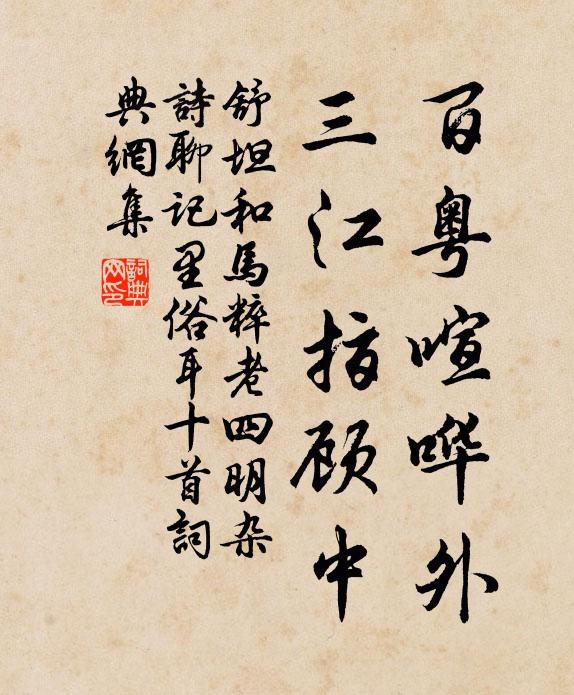 百粤喧哗外
三江指顾中
舒坦和馬粹老四明杂
詩聊記里俗耳十首詞
典網集
詞典網印